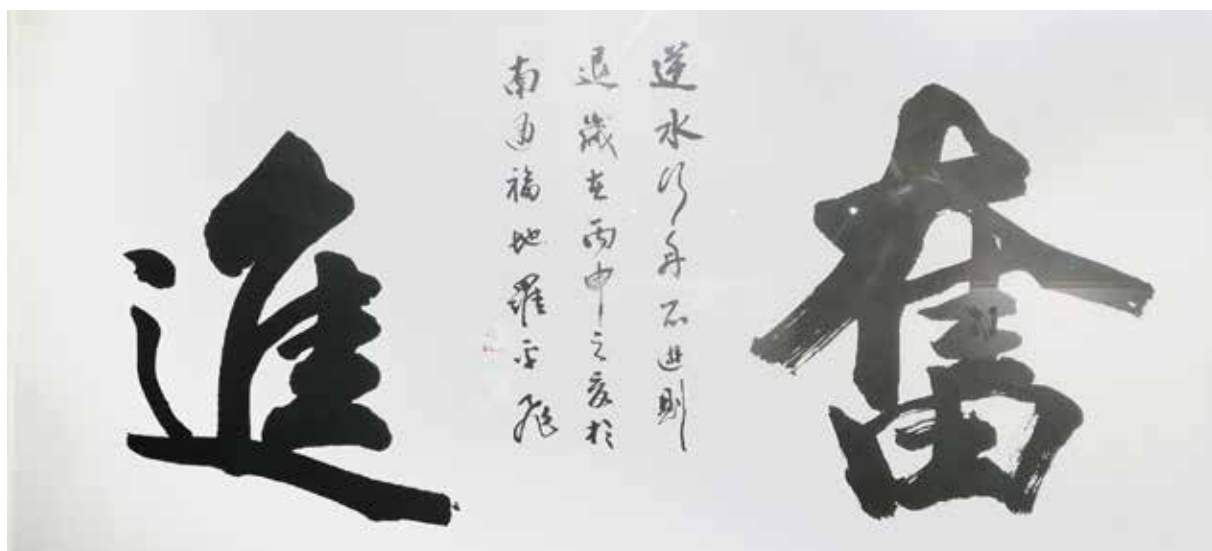 奮
逆水行舟不進則
退歲在丙申之夏於
南通福地羅平飛
進